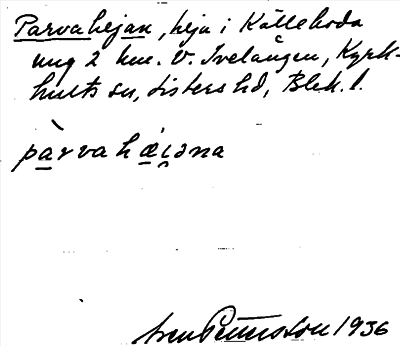 Parvahejan, heja i Källeboda
ung 2 km. V. Ivelången, Kyrk-
hults sn, Listers hd, Blek. l.
pàrvahæi̯əna
Pettersson 1936